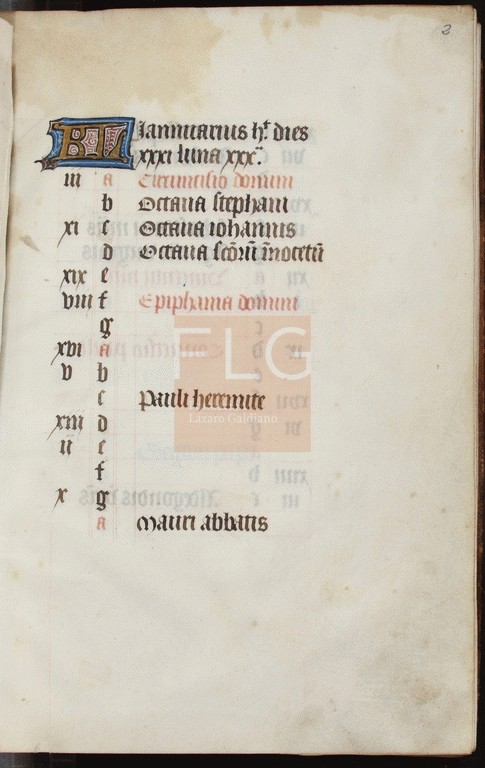 2
KL Ianuarius ht dies
xxxi luna xxx.
iii a Circumcisio domini
b Octaua stephani
xi c Octaua iohannis
d Octaua scōrū īnocētū
xix e
viii f Epiphania domini
g
xvi a
v b
c Pauli heremite
xiii d
ii e
f
x g
a Mauri abbatis
FLG
Lázaro Galdiano